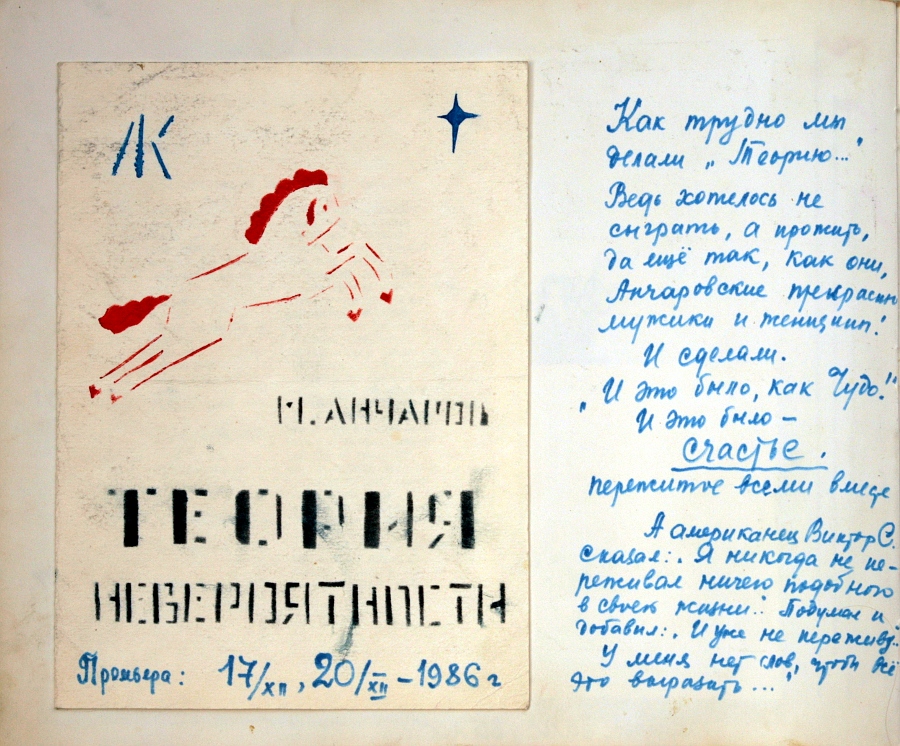 ЛК
М. АНЧАРОВ
ТЕОРИЯ
НЕВЕРОЯТНОСТИ
Премьера: 17/XII, 20/XII – 1986 г
Как трудно мы
делали „Теорию..."
Ведь хотелось не
сыграть, а прожить,
да ещё так, как они,
Анчаровские прекрасные
мужики и женщины!
И сделали.
„И это было, как Чудо!"
И это было –
счастье.
пережитое всеми вместе
А американец Виктор С.
сказал: „Я никогда не пе-
реживал ничего подобного
в своей жизни." Подумал и
добавил: „И уже не переживу..
У меня нет слов, чтобы всё
это выразить..."